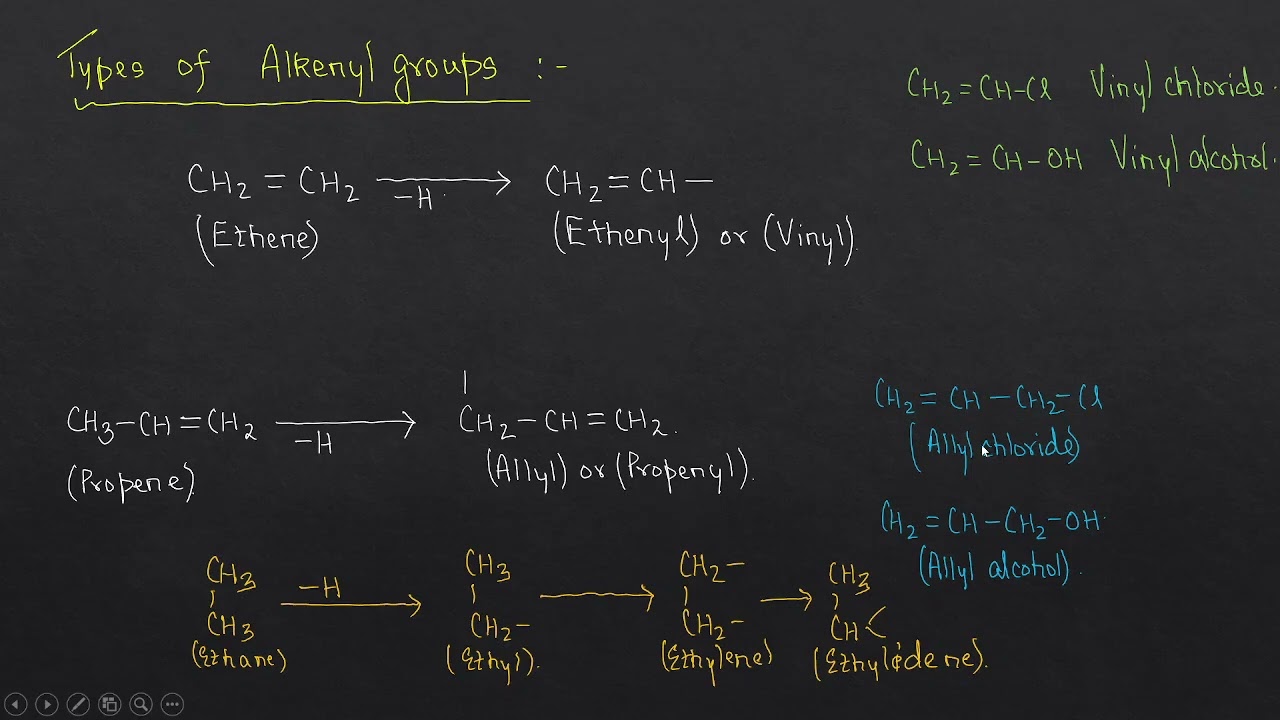 Types of Alkenyl groups :-
CH2=CH-Cl Vinyl chloride.
CH2=CH-OH Vinyl alcohol.
CH2=CH2 -H CH2=CH-
(Ethene) (Ethenyl) or (Vinyl).
CH3-CH=CH2 -H CH2-CH=CH2.
(Propene). (Allyl) or (Propenyl).
CH2=CH-CH2-Cl
(Allyl chloride)
CH2=CH-CH2-OH.
(Allyl alcohol).
CH3 -H CH3 CH2- CH3
CH3 CH2- CH2- CH<
(Ethane) (Ethyl). (Ethylene) (Ethylidene).